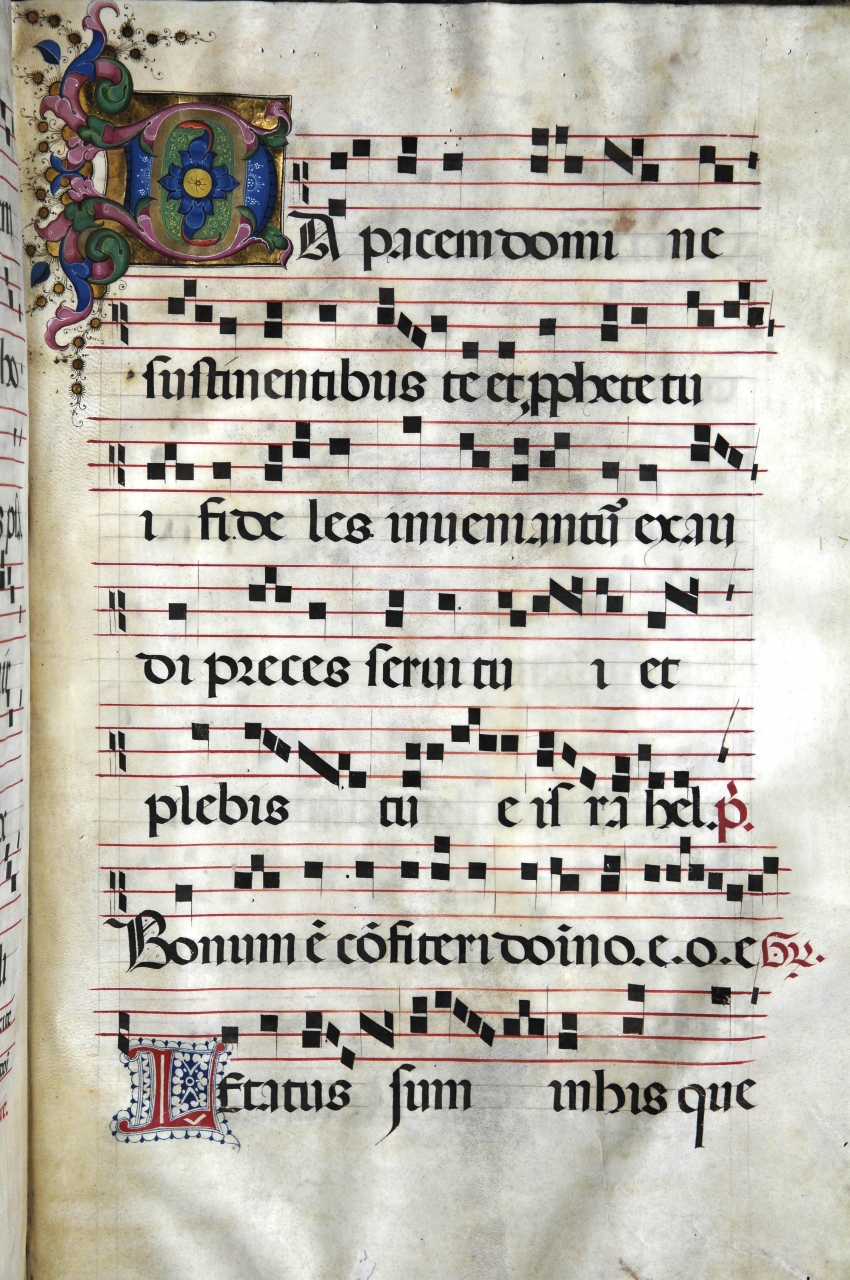 DA pacem domi ne
sustinentibus te et pphete tu
i fide les inueniantũ exau
di preces serui tu i et
plebis tu e is ra hel. p̃.
Bonum ẽ cõfiteri doıño. e. o. e Gr.
LEtatus sum in his que